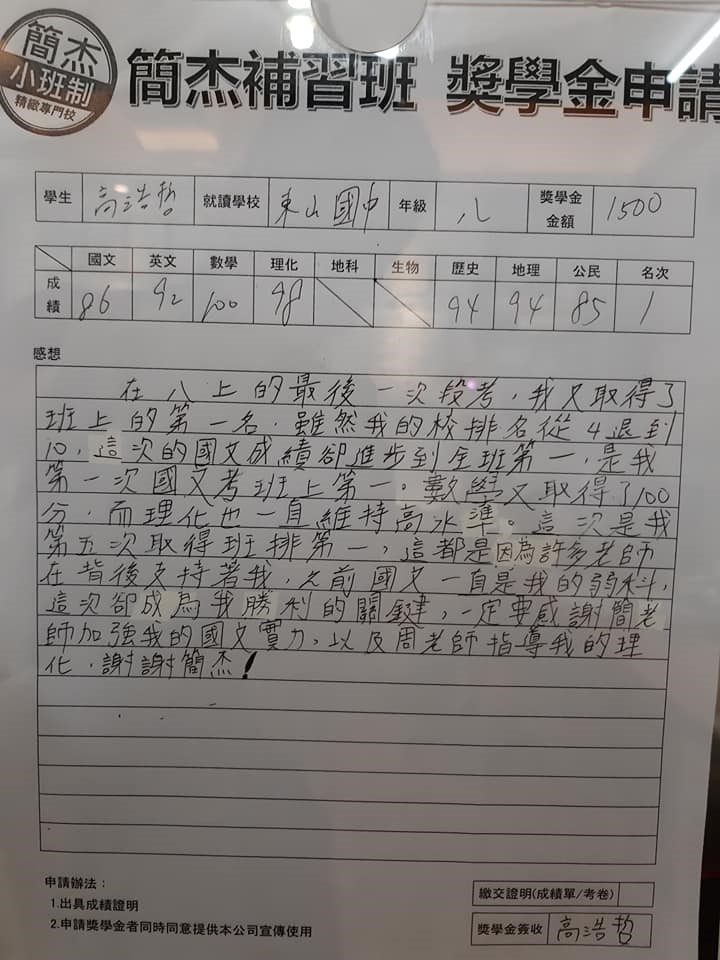 簡杰
小班制
精緻專門校
簡杰補習班 獎學金申請
學生 高浩哲 就讀學校 東山國中 年級 八 獎學金金額 1500
國文 英文 數學 理化 地科 生物 歷史 地理 公民 名次
成績 86 92 100 98 94 94 85 1
感想
在八上的最後一次段考,我又取得了
班上的第一名.雖然我的校排名從4退到
10,這次的國文成績卻進步到全班第一,是我
第一次國文考班上第一。數學又取得了100
分,而理化也一直維持高水準。這次是我
第五次取得班排第一,這都是因為許多老師
在背後支持著我,之前國文一直是我的弱科,
這次卻成為我勝利的關鍵,一定要感謝簡老
師加強我的國文實力,以及周老師指導我的理
化.謝謝簡杰!
申請辦法:
1.出具成績證明
2.申請獎學金者同時同意提供本公司宣傳使用
繳交證明(成績單/考卷)
獎學金簽收 高浩哲